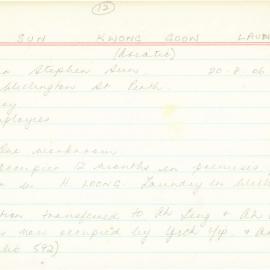 (12)
SUN KWONG GOON LAUN
(Asiatic)
Stephen Sun. 20-8-06
Wellington St Perth.
employees
One workroom
occupied 12 months in premises
H. LOONG. Laundry in Well
transferred to Ah Ling & Ah
now occupied by Yick Yip &
592)